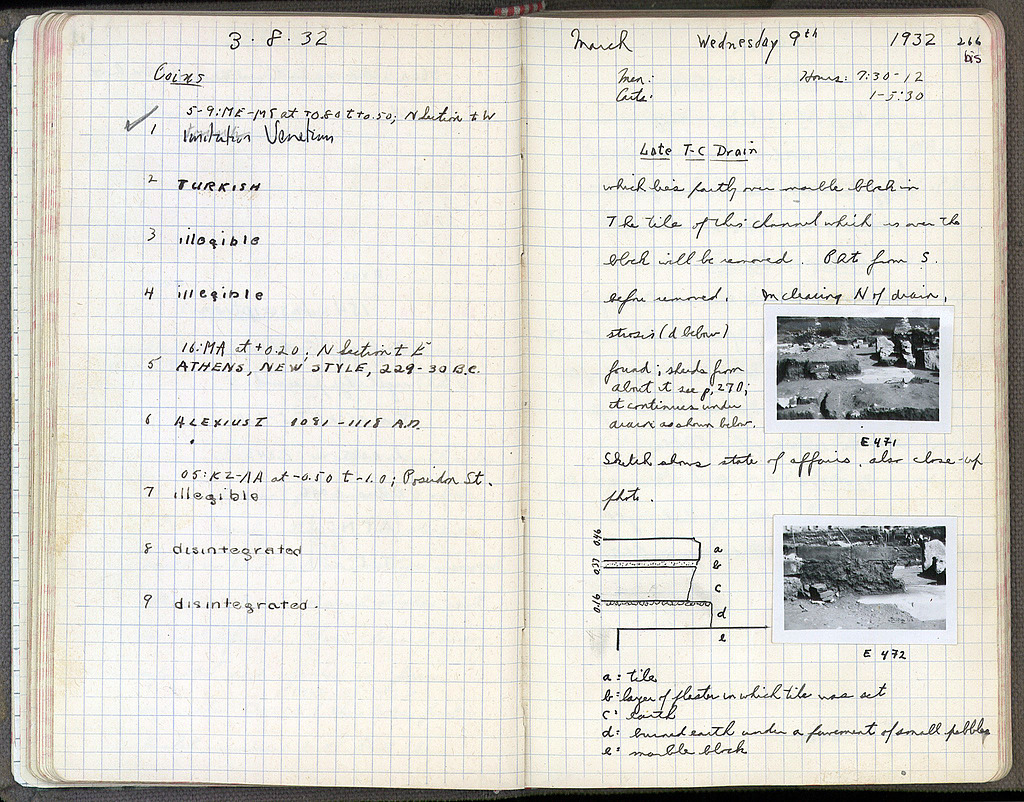 3 · 8 · 32
Coins
5-9:ME-MS at +0.80 t +0.50; N Section t W
1 Imitation Venetian
2 TURKISH
3 illegible
4 illegible
16:MA at +0.20; N Section t E
5 ATHENS, NEW STYLE, 229-30 B.C.
6 ALEXIUS I 1081-1118 A.D.
05:KZ-AA at -0.50 t -1.0; Poseidon St.
7 illegible
8 disintegrated
9 disintegrated.
March Wednesday 9th 1932 266 bis
Men: Hours: 7:30-12
Carts: 1-5:30
Late T-C Drain
which lies partly over marble block in
The tile of this channel which is over the
block will be removed. Pht from S.
before removed. In clearing N of drain,
strosis (d below)
found; sherds from
about it see p. 270;
it continues under
drain as shown below.
E 471
Sketch shows state of affairs, also close-up
photo.
0.46
0.37
0.16
a
b
c
d
e
E 472
a: tile
b: layer of plaster in which tile was set
c: earth
d: burned earth under a pavement of small pebbles
e: marble block